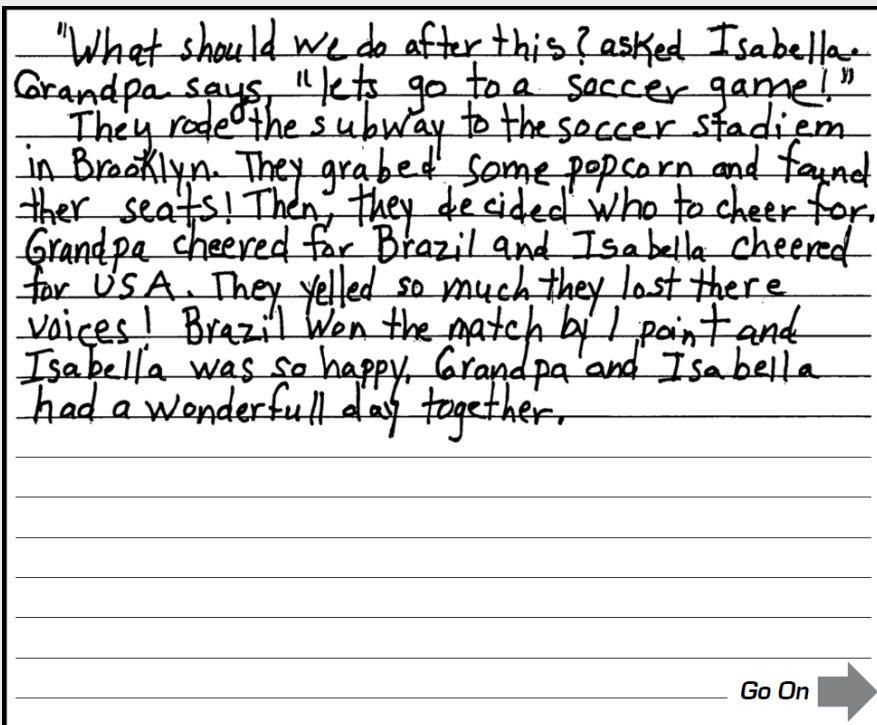 "What should we do after this? asked Isabella.
Grandpa says, "lets go to a soccer game!"
They rode the subway to the soccer stadiem
in Brooklyn. They grabed some popcorn and found
ther seats! Then, they decided who to cheer for.
Grandpa cheered for Brazil and Isabella cheered
for USA. They yelled so much they lost there
voices! Brazil won the match by 1 point and
Isabella was so happy. Grandpa and Isabella
had a wonderfull day together.
Go On